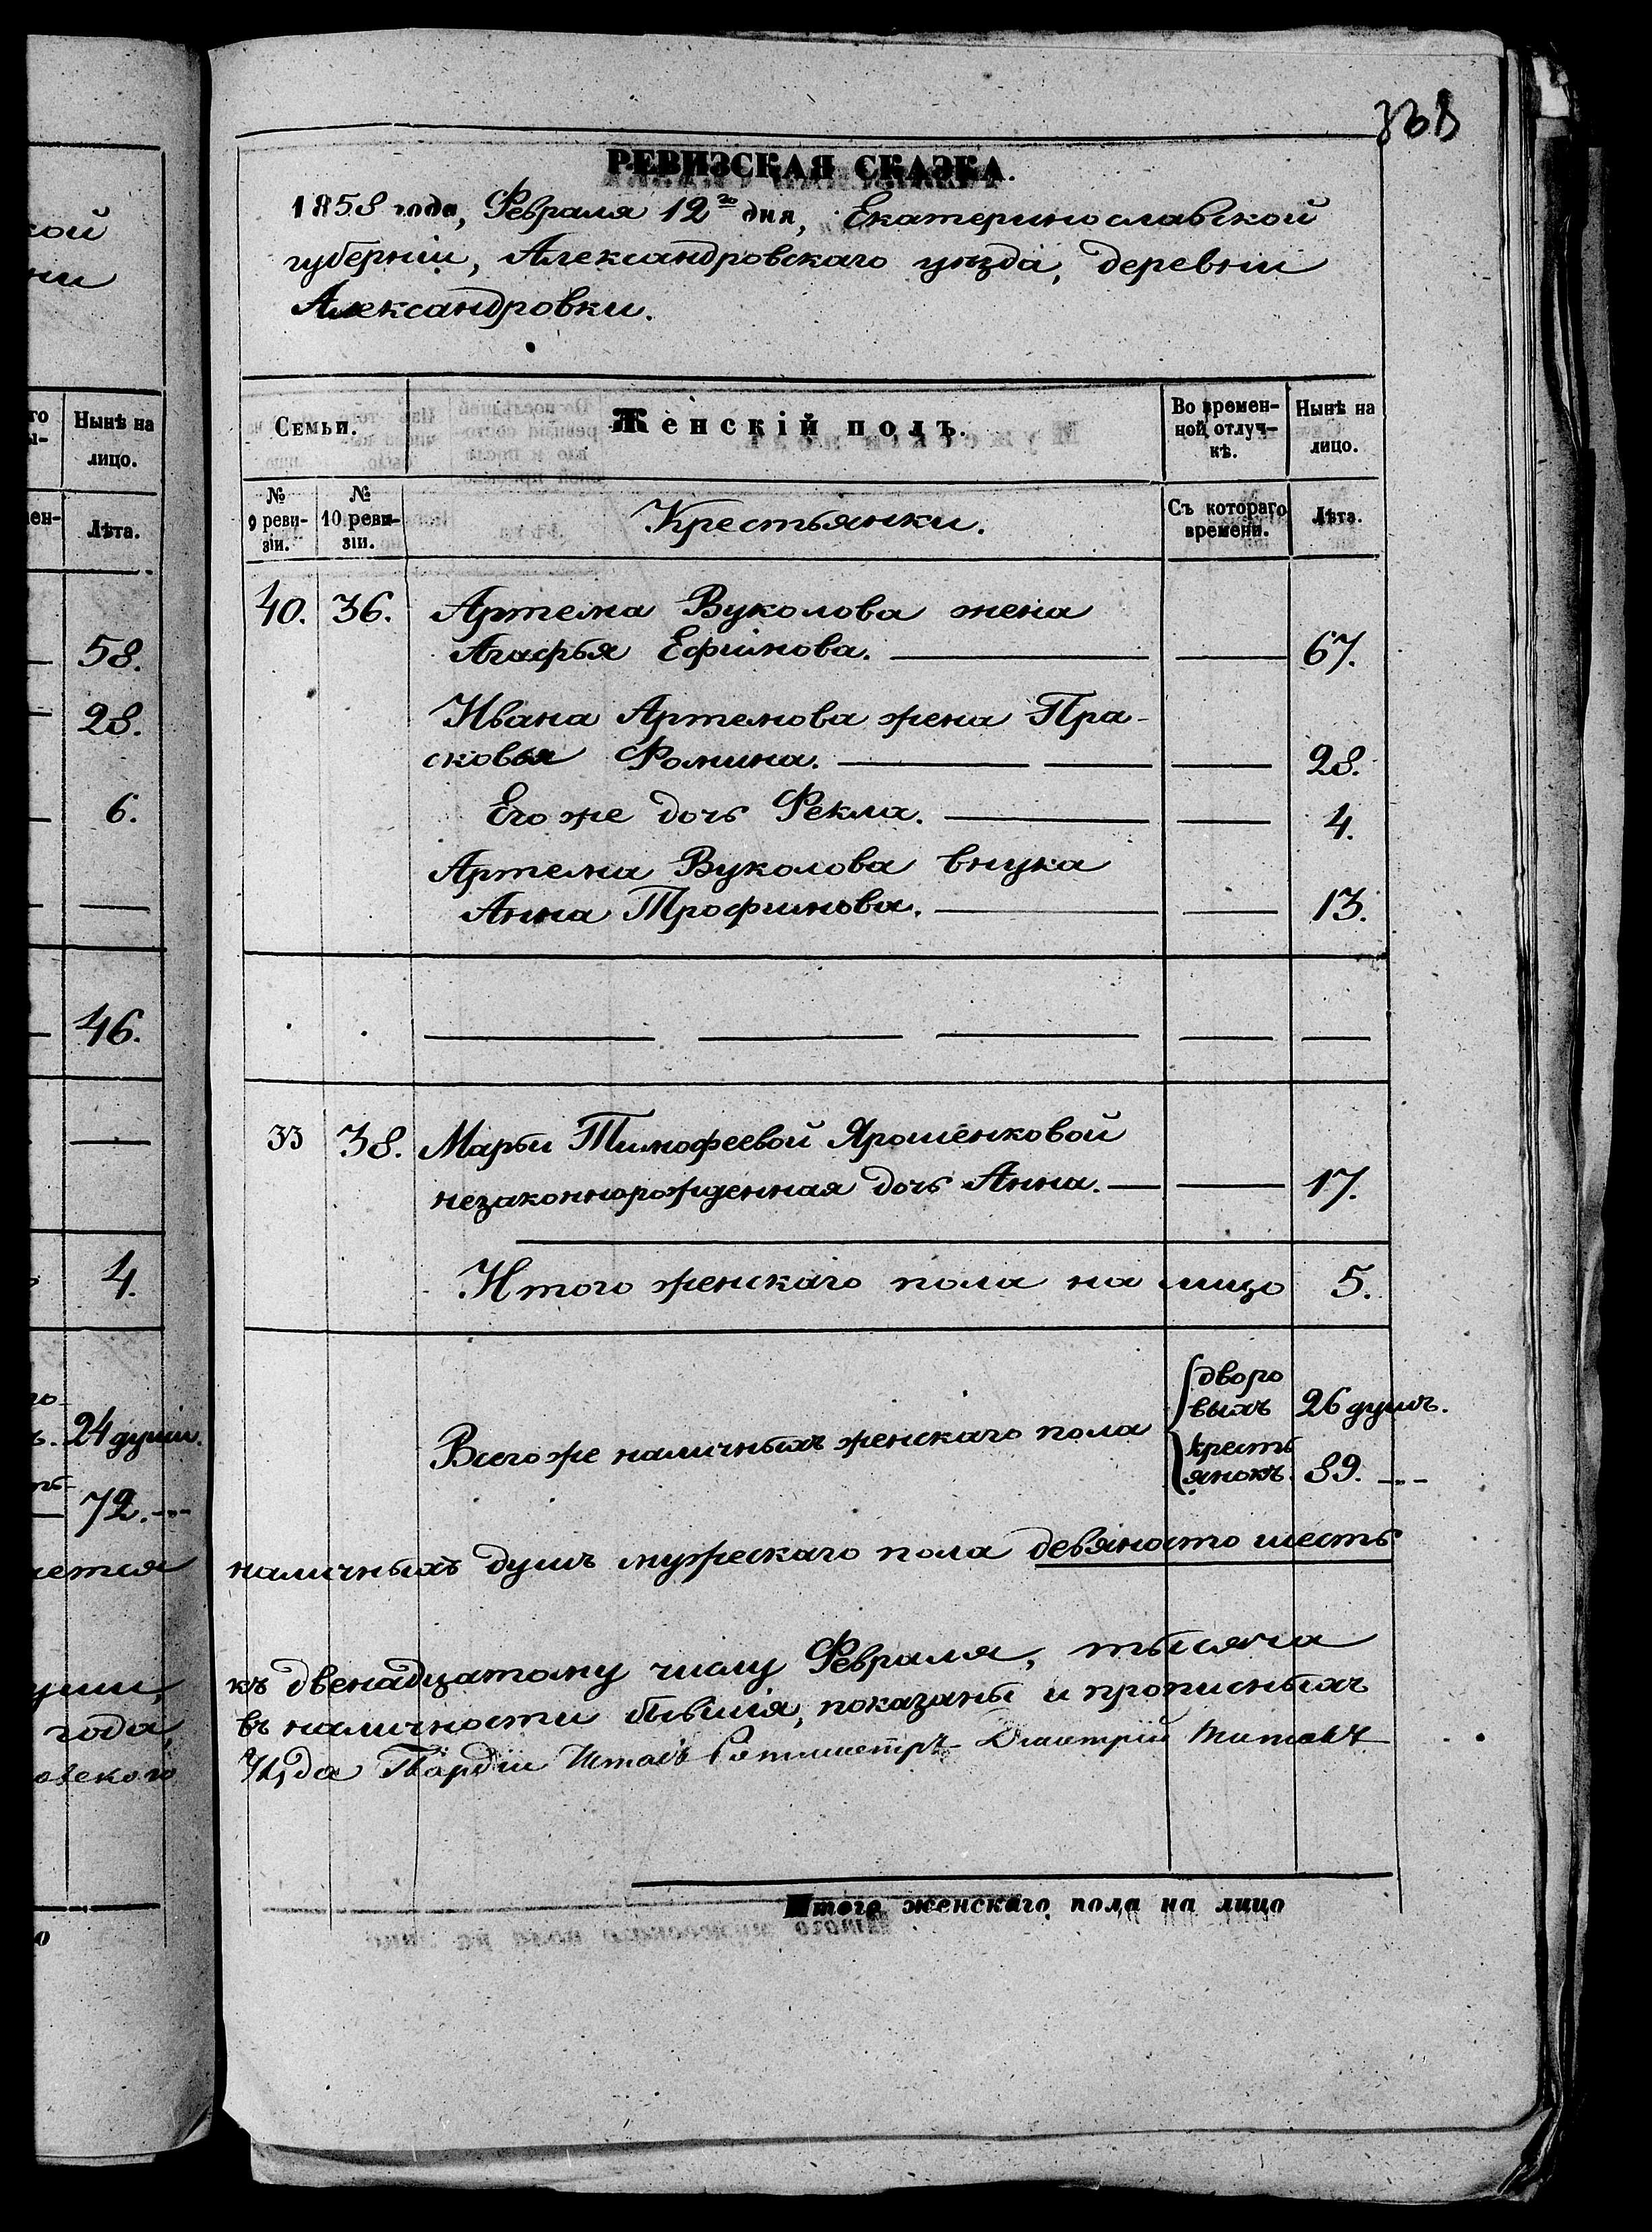 338
РЕВИЗСКАЯ СКАЗКА.
1858 года, Февраля 12го дня, Екатеринославской
губерніи, Александровскаго уѣзда, деревни
Александровки.
Семьи.
Женскій полъ.
Во времен-
ной отлуч-
кѣ.
Нынѣ на
лицо.
№
9 реви-
зіи.
№
10 реви-
зіи.
Крестьянки.
Съ котораго
времени.
Лѣта.
40. 36. Артема Вуколова жена
Агафья Ефимова. 67.
Ивана Артемова жена Пра-
сковья Фомина. 28.
Его же дочь Фекла. 4.
Артема Вуколова внука
Анна Трофимова. 13.
33 38. Марьи Тимофеевой Ярошенковой
незаконнорожденная дочь Анна. 17.
Итого женскаго пола на лицо 5.
Всего же наличныхъ женскаго пола
дворо
выхъ 26 душъ.
кресть
янокъ. 89.
наличныхъ душъ мужескаго пола девяносто шесть
къ двенадцатому числу Февраля, тысяча
въ наличности бывшія, показаны и прописныхъ
Гвардіи Штабъ Ротмистръ Дмитрій Титовъ
Итого женскаго пола на лицо
Нынѣ на
лицо.
Лѣта.
58.
28.
6.
46.
4.
24 души.
72.
года,